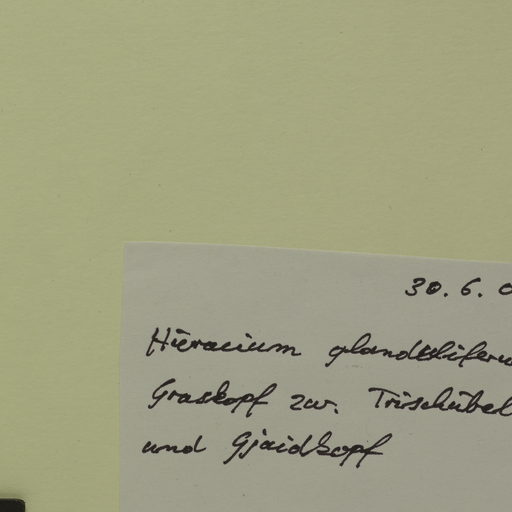 30. 6. 0
Hieracium glanduliferu
Graskopf zw. Trischübel
und Gjaidkopf